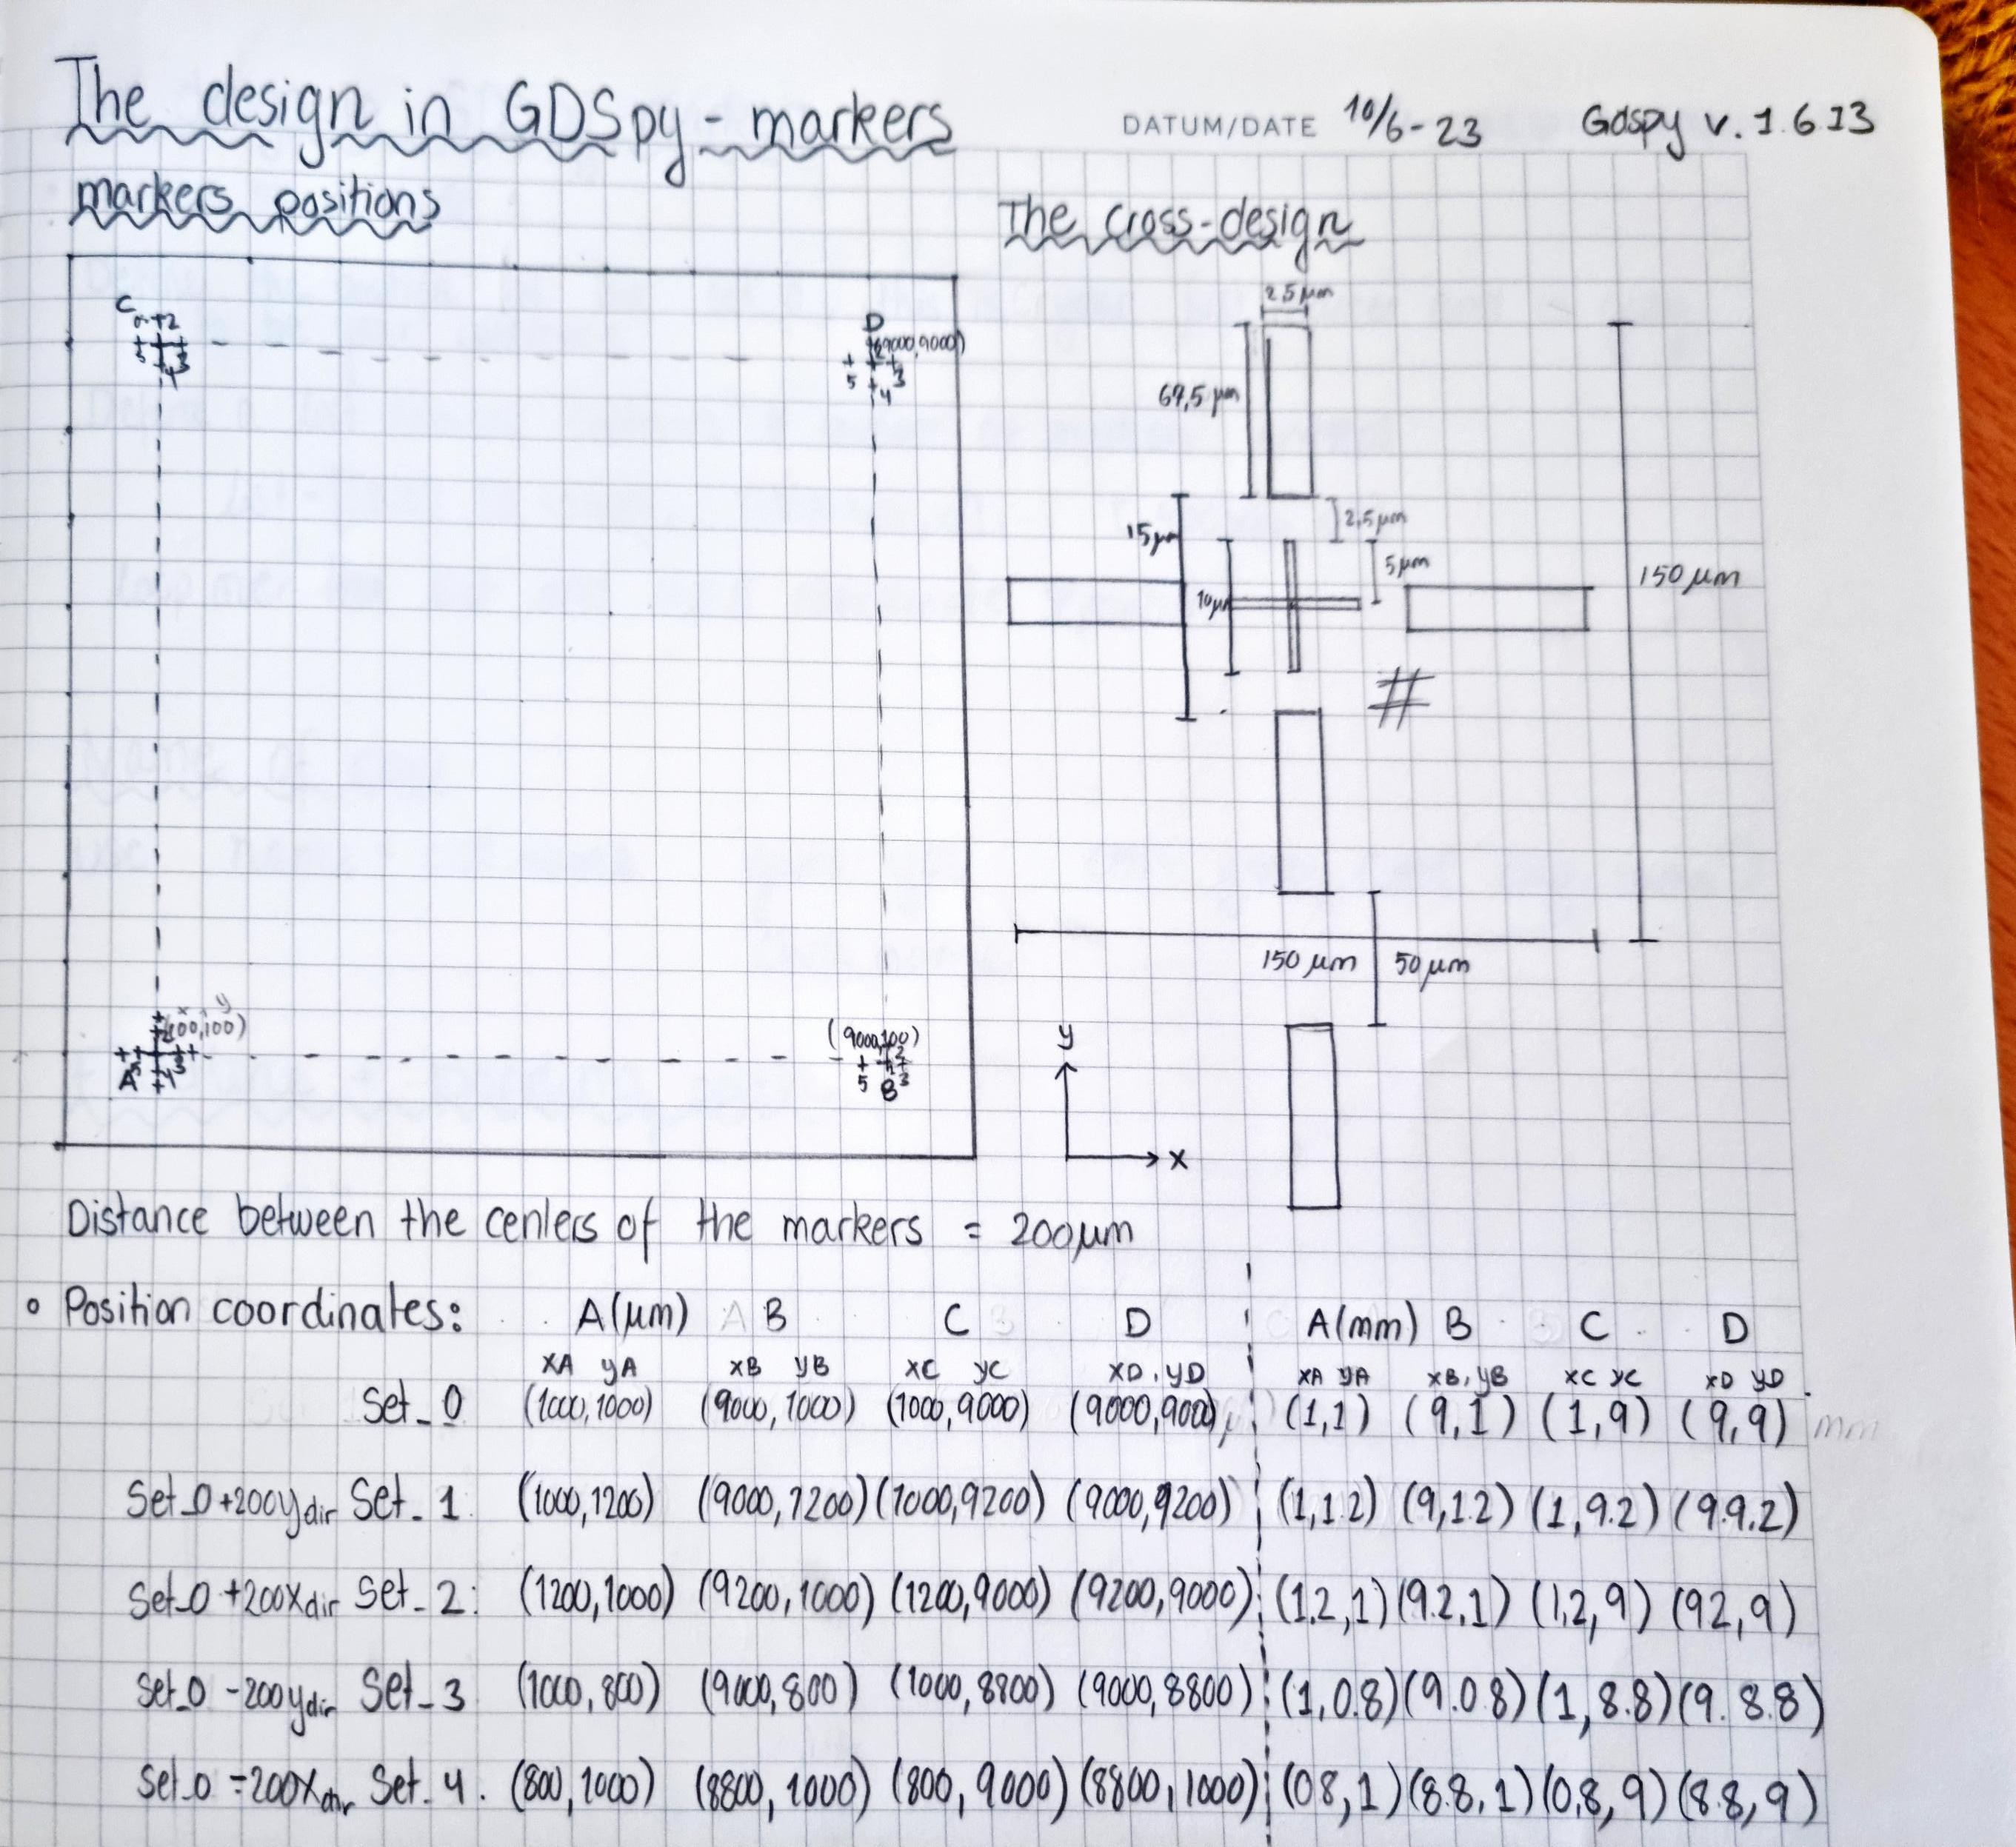 The design in GDSpy - markers
DATUM/DATE 10/6-23 Gdspy v. 1.6.13
markers positions
The cross-design
C
2
3
4
5
D
(9000,9000)
2
3
4
5
25 µm
67,5 µm
2,5 µm
15 µm
5 µm
10 µ
150 µm
#
150 µm
50 µm
x y
(100,100)
A
(9000,100)
2
3
5
B
y
x
Distance between the centers of the markers = 200µm
o Position coordinates: A(µm) B C D A(mm) B C D
xA yA xB yB xC yC xD, yD xA yA xB, yB xC yC xD yD
Set_0 (1000,1000) (9000,1000) (1000,9000) (9000,9000) (1,1) (9,1) (1,9) (9,9) mm
Set_0+200y dir Set_1 (1000,1200) (9000,1200) (1000,9200) (9000,9200) (1,1.2) (9,1.2) (1,9.2) (9.9.2)
Set_0 +200x dir Set_2: (1200,1000) (9200,1000) (1200,9000) (9200,9000) (1.2,1) (9.2,1) (1,2,9) (92,9)
Set_0 -200y dir Set_3 (1000,800) (9000,800) (1000,8800) (9000,8800) (1,0.8) (9.08) (1,8.8) (9.8.8)
Set_0 -200x dir Set_4. (800,1000) (8800,1000) (800,9000) (8800,1000) (08,1) (8.8,1) (0,8,9) (8.8,9)